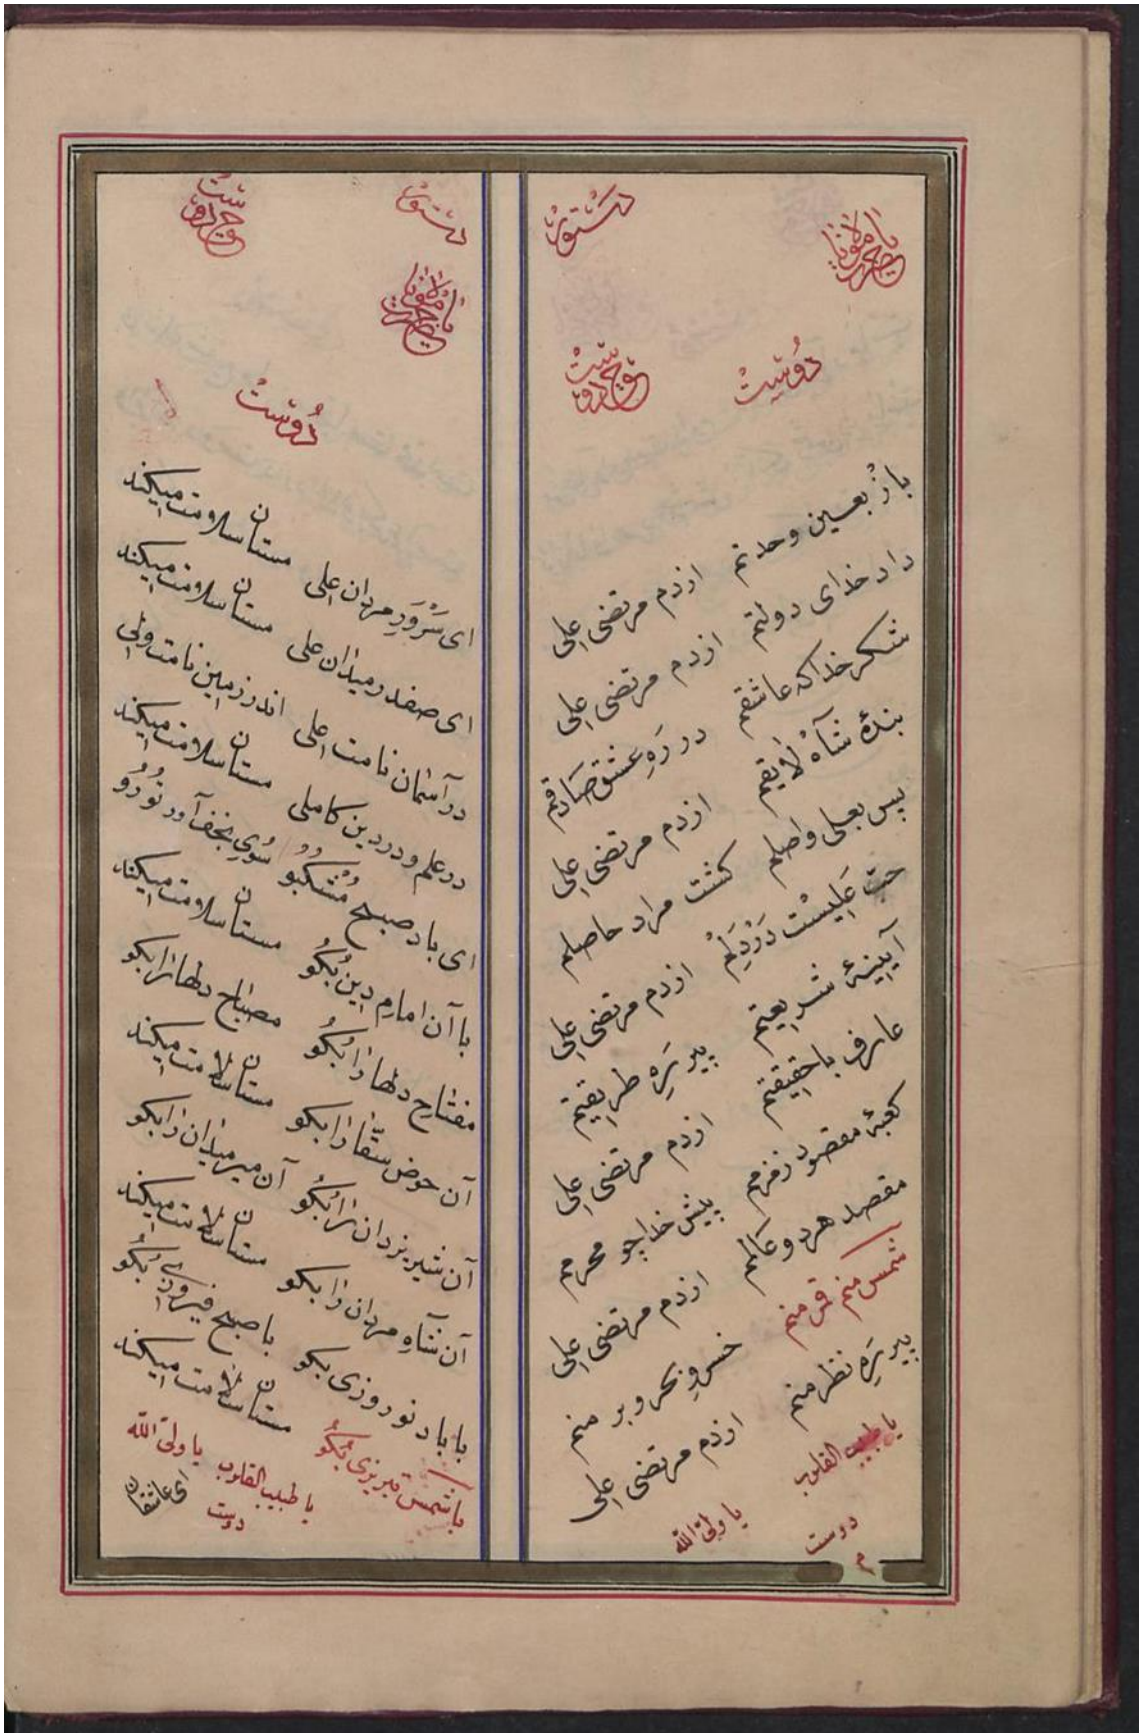 یا حضرت مولانا
دستور
دوست
حق دوست
باز بعین وحدتم ازدم مرتضی علی
داد خدای دولتم ازدم مرتضی علی
شکر خدا که عاشقم در رَهِ عشق صادقم
بندهٔ شاه لایقم ازدم مرتضی علی
بس بعلی واصلم کشت مراد حاصلم
حب علیست در دلم ازدم مرتضی علی
آیینهٔ شریعتم پیر رَهِ طریقتم
عارف باحقیقتم ازدم مرتضی علی
کعبهٔ مقصود زمزمم پیش خدا چو محرمم
مقصد هر دو عالمم ازدم مرتضی علی
شمس منم قمر منم خسرو بحر و بر منم
پیر رَهِ نظر منم ازدم مرتضی علی
یا طبیب القلوب یا ولی الله
دوست
م
دستور
حق دوست
یا حضرت مولانا
دوست
ای سَرْوَرِ مردان علی مستان سلامت میکند
ای صفدر میدان علی مستان سلامت میکند
در آسمان نامت علی اندر زمین نامت ولی
در علم و در دین کاملی مستان سلامت میکند
ای باد صبح مُشْکبُو سُوی نجف آور تو رُو
با آن امامِ دین بُکُو مستان سلامت میکند
مفتاح دلها را بُکُو مصباح دلها را بکو
آن حوض سقّا را بکو مستان سلامت میکند
آن شیر یزدان را بُکُو آن میر میدان را بکو
آن شاهِ مردان را بکو مستان سلامت میکند
با باد نوروزی بکو با صبح فیروزی بُکُو
با شمس تبریزی بُکُو مستان سلامت میکند
یا طبیب القلوب یا ولی الله
دوست
ای عاشقان